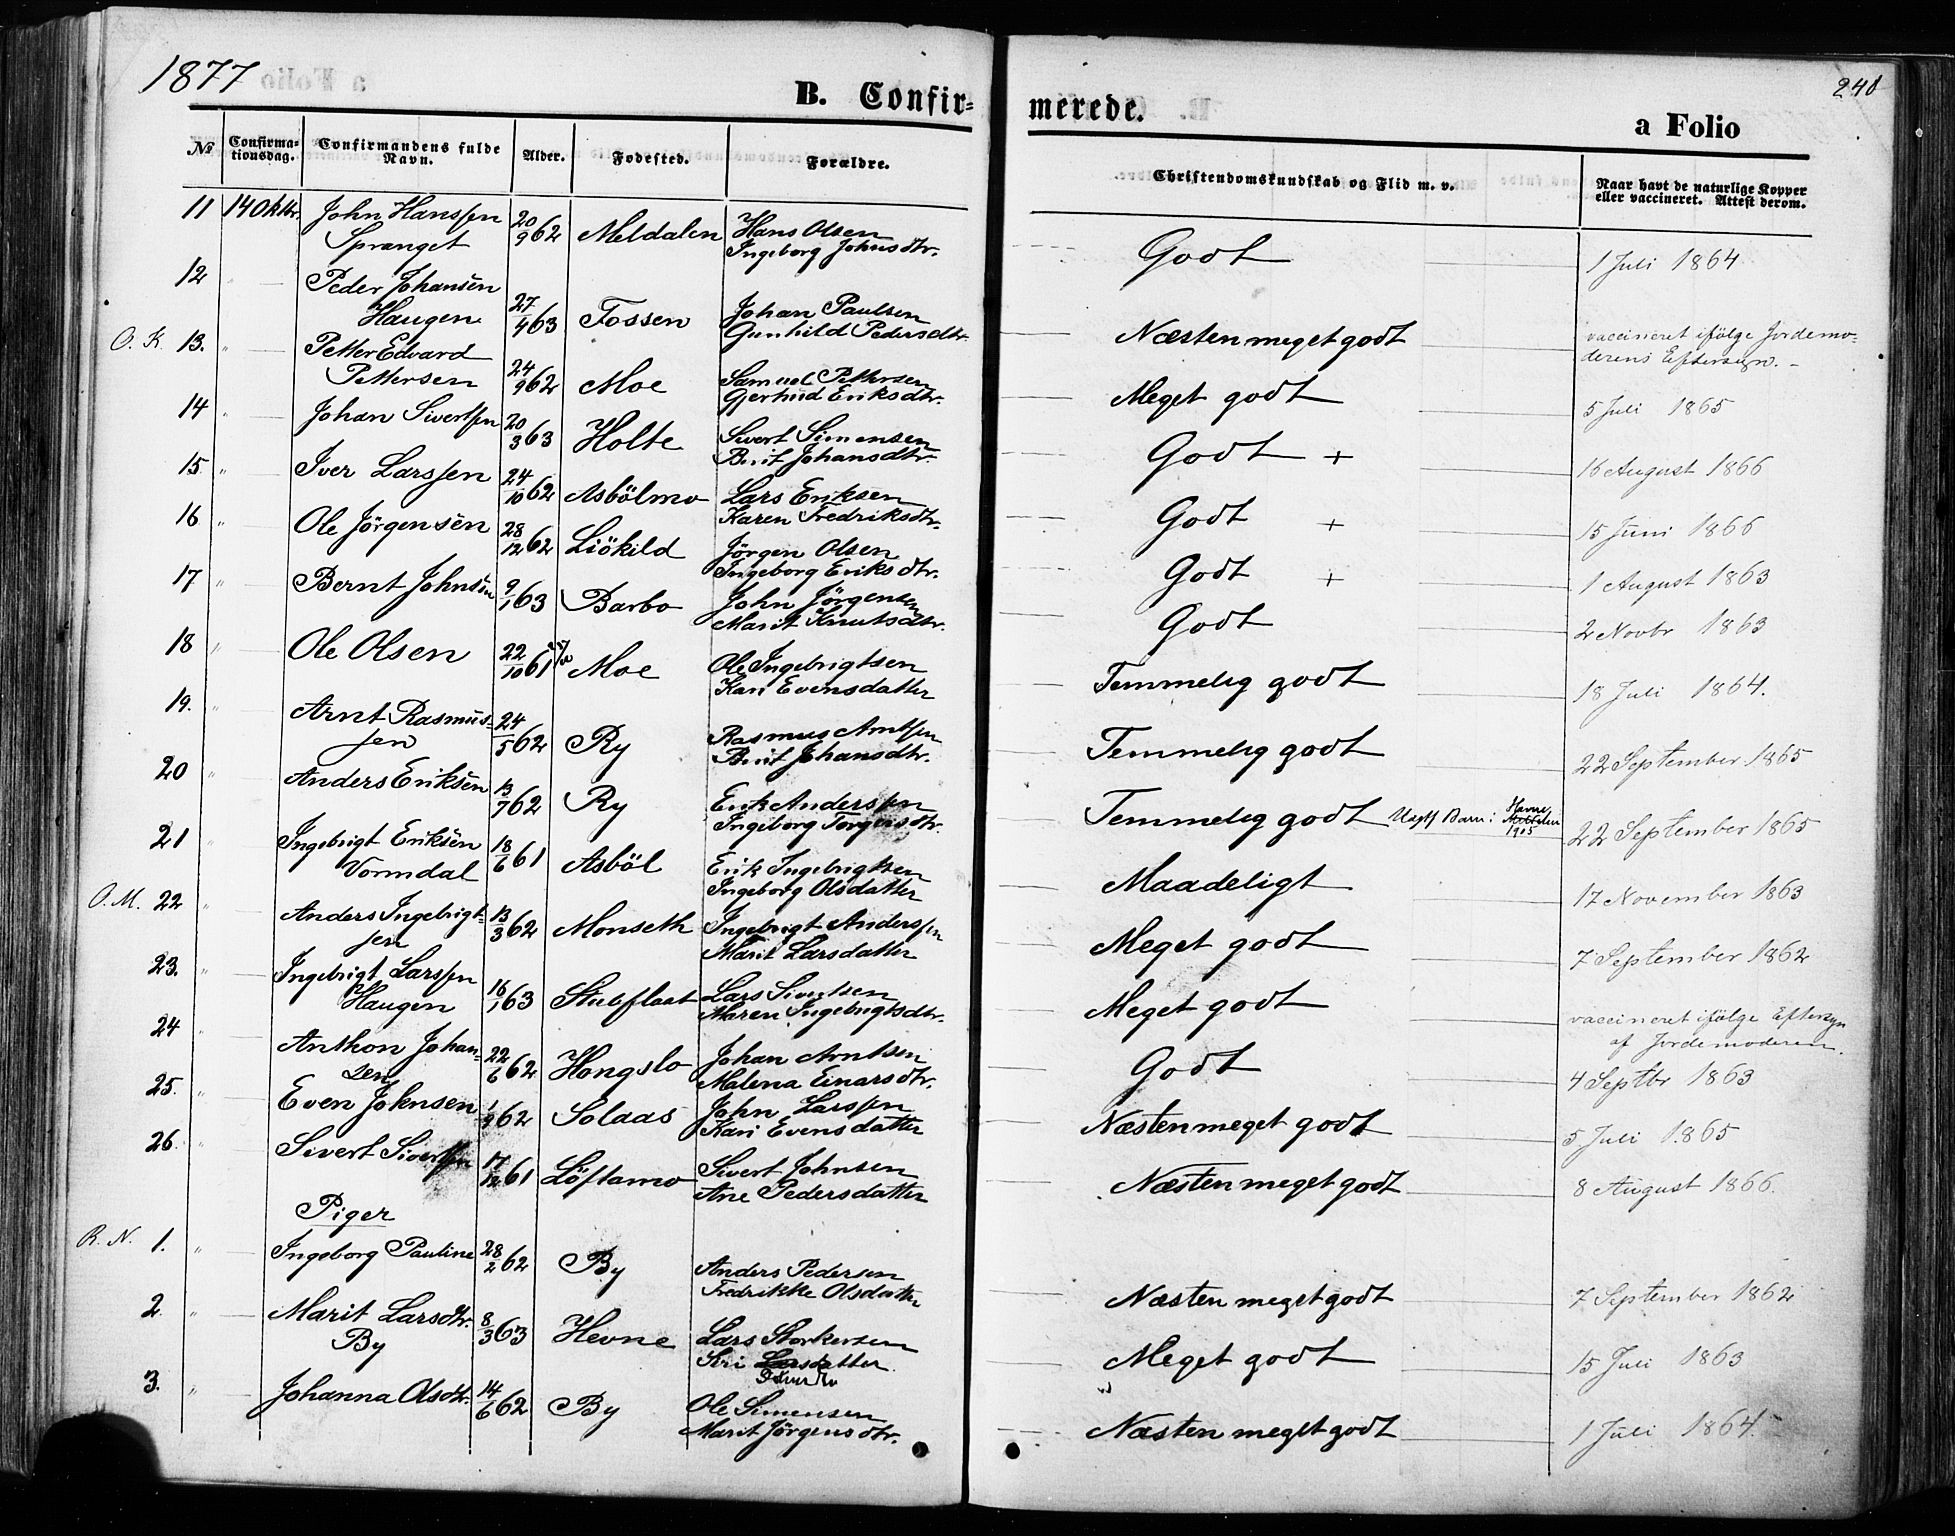 1877
B. Confir-
merede.
a Folio
240
№
Confirma-
tionsdag.
Confirmandens fulde
Navn.
Alder.
Fødested.
Forældre.
Christendomskundskab og Flid m. v.
Naar havt de naturlige Kopper
eller vaccineret. Attest derom.
11 14 Oktbr. John Hanssen 20/9 62 Meldalen Hans Olsen Godt 1 Juli 1864
Spranget Ingeborg Johnsdtr.
12 " Peder Johansen 27/4 63 Fossen Johan Paulsen Næsten meget godt vaccineret ifölge Jordemo-
Haugen Gunhild Pedersdtr. derens Eftersyn. -
O. K. 13. " Petter Edvard 24/9 62 Moe Samuel Pettersen Meget godt 5 Juli 1865
Pettersen Gertrud Eriksdtr.
14 " Johan Sivertsen 20/3 63 Holte Sivert Simensen Godt + 16 August 1866
Berit Johansdtr.
15 " Iver Larssen 24/10 62 Asbölmo Lars Eriksen Godt + 15 Juni 1866
Karen Fredriksdtr.
16 " Ole Jörgensen 28/12 62 Liökild Jörgen Olsen Godt + 1 August 1863
Ingeborg Eriksdtr.
17 " Bernt Johnsen 9/1 63 Barbo John Jörgensen Godt 2 Novbr 1863
Marit Knutsdtr.
18 " Ole Olsen 22/10 61 Moe Ole Ingebrigtsen Temmelig godt 18 Juli 1864.
Kari Evensdatter
19. " Arnt Rasmus- 24/5 62 Ry Rasmus Arntsen Temmelig godt 22 September 1865
sen Berit Johansdtr.
20 " Anders Eriksen 13/7 62 Ry Erik Anderssen Temmelig godt Uægt Barn i Havne 1905 22 September 1865
Ingeborg Torgersdtr.
21 " Ingebrigt Eriksen 18/6 61 Asböl Erik Ingebrigtsen Maadeligt 17 November 1863
Vormdal Ingeborg Olsdatter
O. M. 22 " Anders Ingebrigt- 13/3 62 Monseth Ingebrigt Anderssen Meget godt 7 September 1862
sen Marit Larsdatter
23. " Ingebrigt Larssen 16/1 63 Stubflaat Lars Sivertsen Meget godt vaccineret ifölge Eftersyn
Haugen Maren Ingebrigtsdtr. af Jordemoderen.
24 " Anthon Johan- 22/6 62 Hongslo Johan Arntsen Godt 4 Septbr 1863
sen Malena Einarsdtr.
25. " Even Johnsen 1/9 62 Solaas John Larssen Næsten meget godt 5 Juli 1865
Kari Evensdatter
26. " Sivert Sivertsen 17/12 61 Löftamo Sivert Johnsen Næsten meget godt 8 August 1866.
Ane Pedersdatter
Piger
R. N. 1. " Ingeborg Pauline 28/2 62 By Anders Pedersen Næsten meget godt 7 September 1862
Fredrikke Olsdatter
2 " Marit Larsdtr. 8/3 63 Hevne Lars Storkersen Meget godt 15 Juli 1863
By Siri Larsdatter
3. " Johanna Olsdtr. 14/6 62 By Ole Simensen Næsten meget godt 1 Juli 1864.
Marit Jörgensdtr.